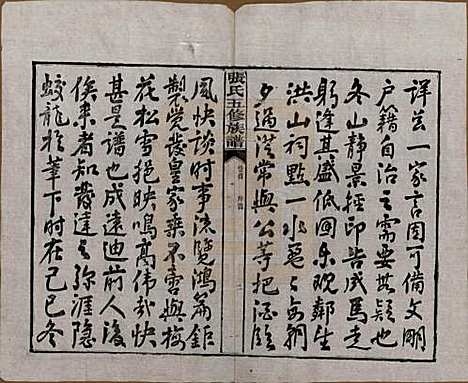 詳茲一家言固可備文明
户籍自治之需要無疑也
冬山靜景授印告成馬走
躬逢其盛低囬樂觀鄰生
洪山祠點一水
夕過從常與公等把酒臨
張氏五修族譜
風快談時事流覽鴻篇鉅
製覺發皇家乘不啻與梅
花松雪掩映鳴高偉哉快
甚是譜也成遠迪前人後
俟來者知發達之弥涯隱
蛟龍於筆下時在己巳冬